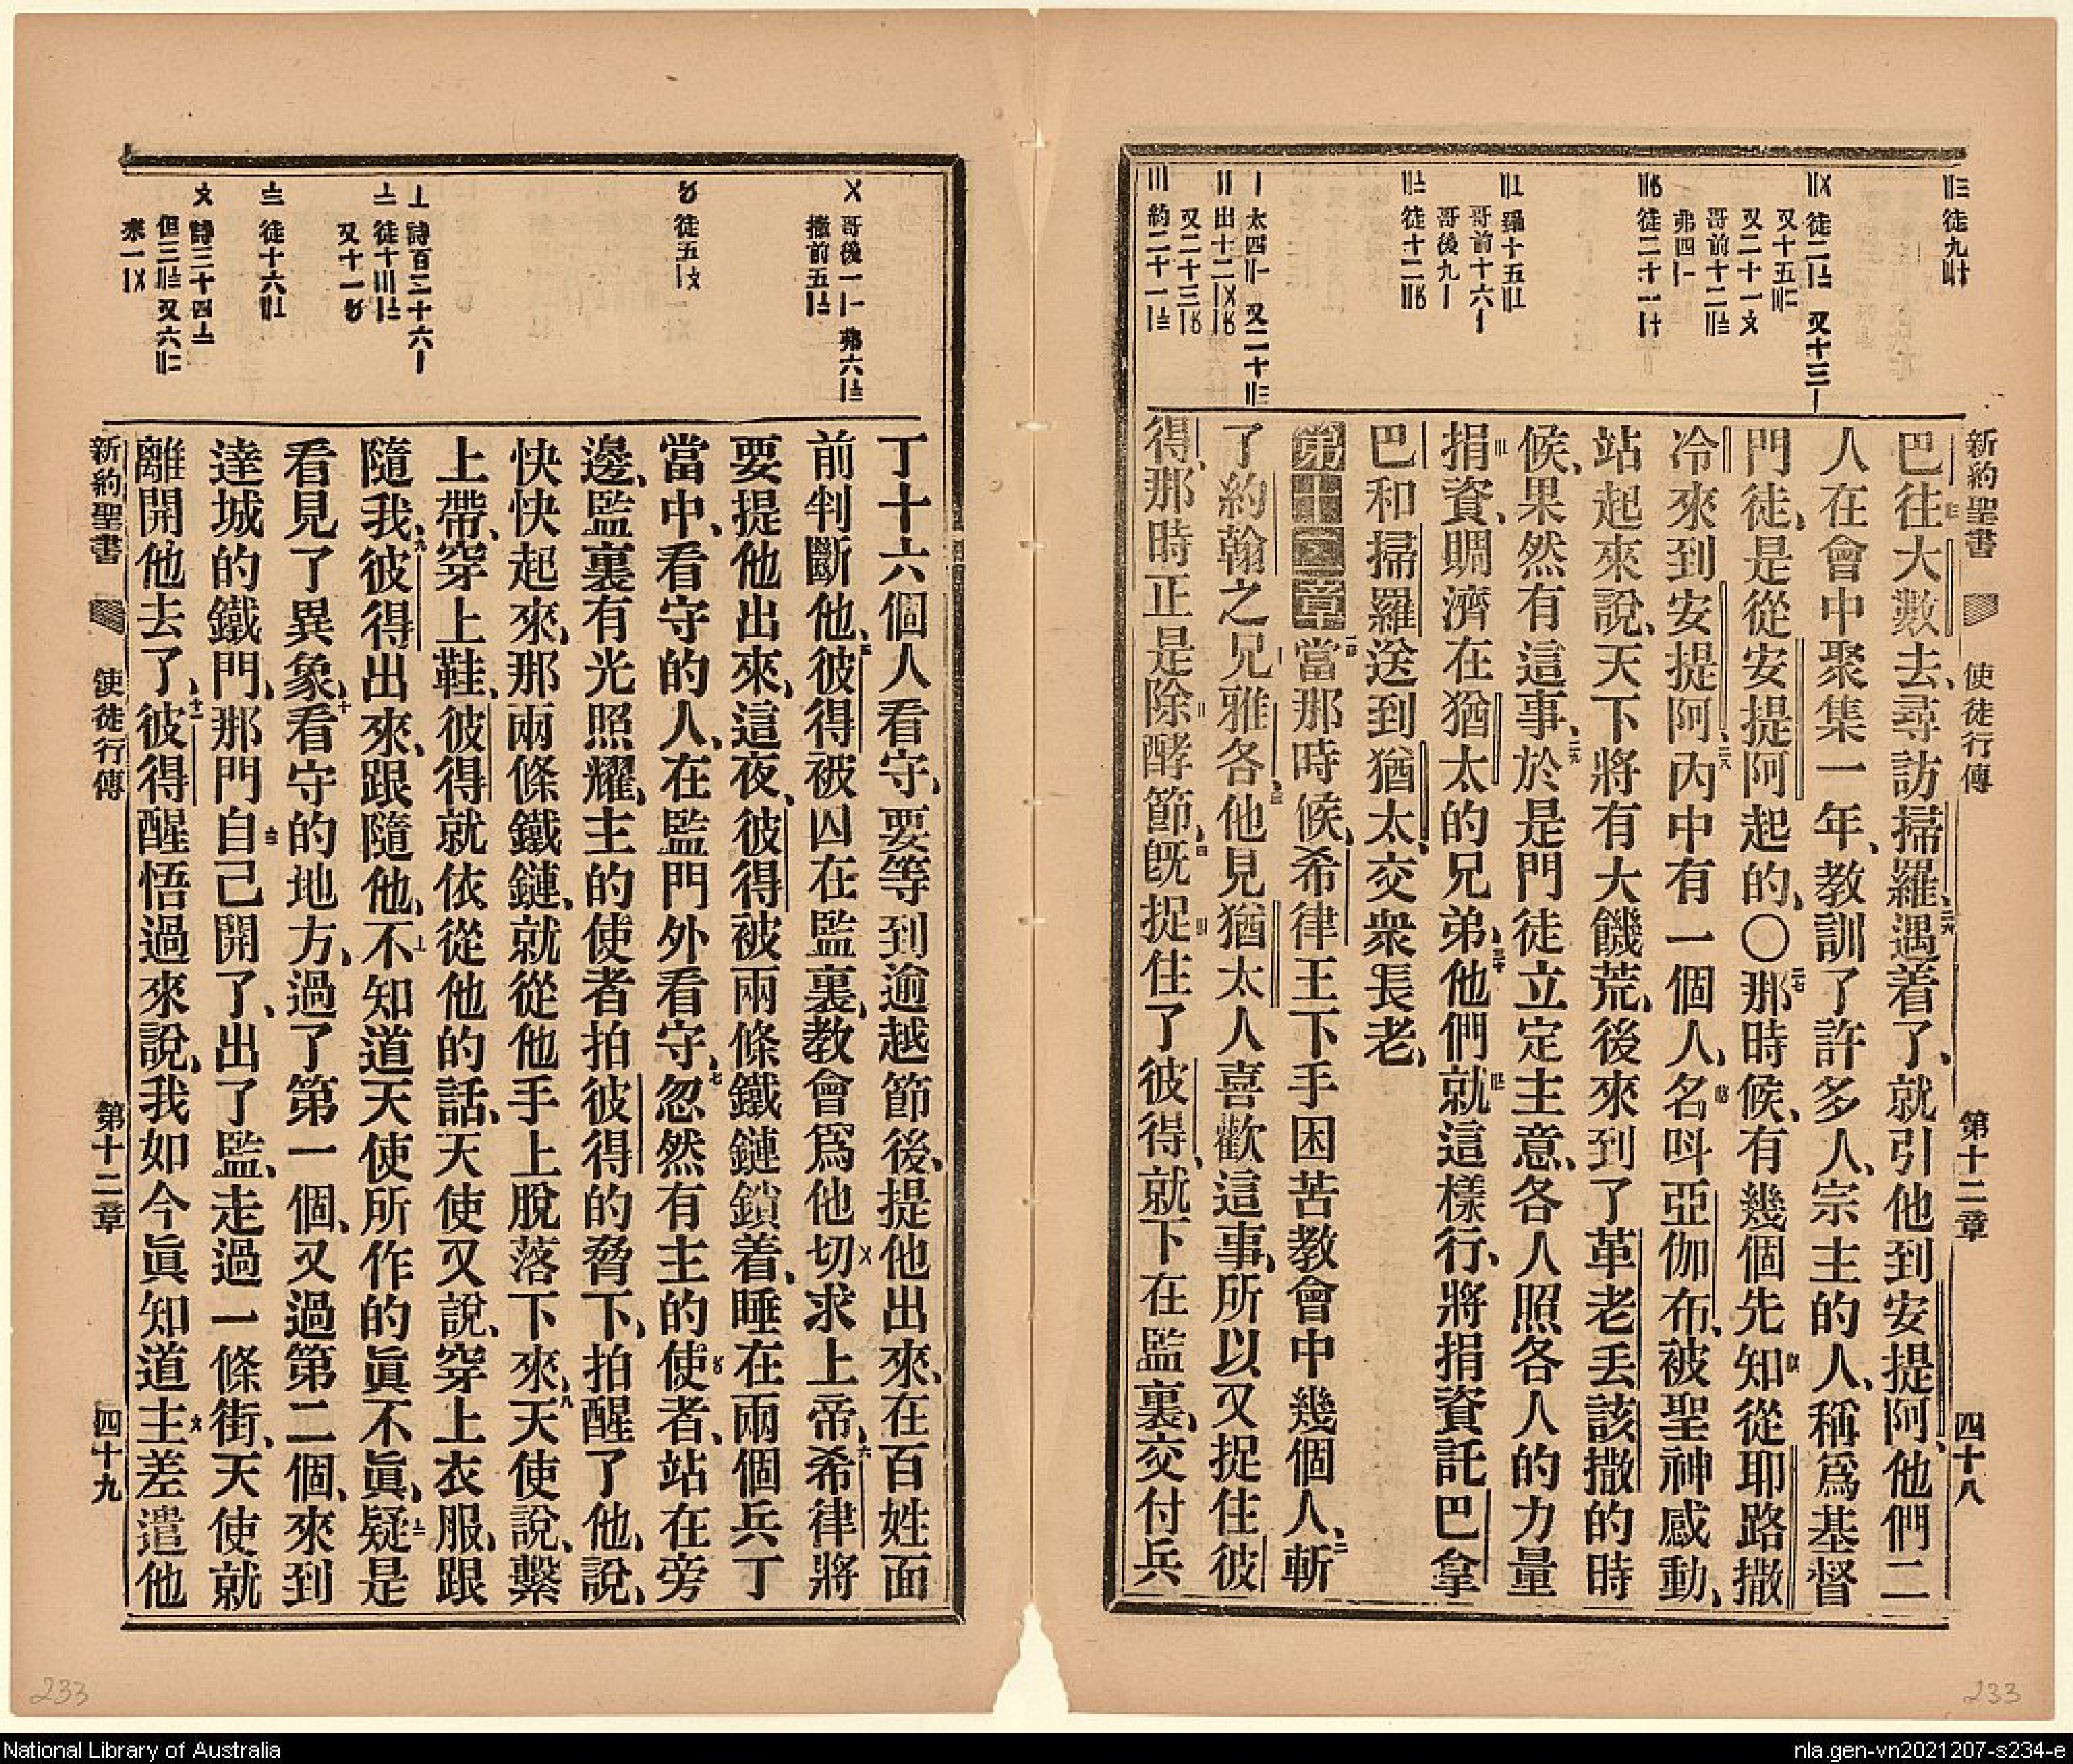 新約聖書 使徒行傳 第十二章 四十八
巴往大數去、尋訪掃羅、二六遇着了、就引他到安提阿、他們二
人在會中聚集一年、教訓了許多人、宗主的人、稱爲基督
門徒、是從安提阿起的、〇二七那時候、有幾個先知從耶路撒
冷來到安提阿、二八內中有一個人、名呌亞伽布、被聖神感動、
站起來說、天下將有大饑荒、後來到了革老丢該撒的時
候、果然有這事、二九於是門徒立定主意、各人照各人的力量
捐資、賙濟在猶太的兄弟、三十他們就這樣行、將捐資託巴拿
巴和掃羅送到猶太、交衆長老、
第十二章 一當那時候、希律王下手困苦教會中幾個人、二斬
了約翰之兄雅各、三他見猶太人喜歡這事、所以又捉住彼
得、那時正是除酵節、四旣捉住了彼得、就下在監裏、交付兵
丁十六個人看守、要等到逾越節後、提他出來、在百姓面
前判斷他、五彼得被囚在監裏、教會爲他切求上帝、六希律將
要提他出來、這夜、彼得被兩條鐵鏈鎖着、睡在兩個兵丁
當中、看守的人、在監門外看守、七忽然有主的使者、站在旁
邊、監裏有光照耀、主的使者拍彼得的脅下、拍醒了他、說、
快快起來、那兩條鐵鏈、就從他手上脫落下來、八天使說、繫
上帶、穿上鞋、彼得就依從他的話、天使又說、穿上衣服、跟
隨我、九彼得出來、跟隨他、不知道天使所作的眞不眞、疑是
看見了異象、十看守的地方、過了第一個、又過第二個、來到
達城的鐵門、那門自己開了、出了監、走過一條街、天使就
離開他去了、十一彼得醒悟過來說、我如今眞知道主差遣他
新約聖書 使徒行傳 第十二章 四十九
233
233
National Library of Australia
nla.gen-vn2021207-s234-e